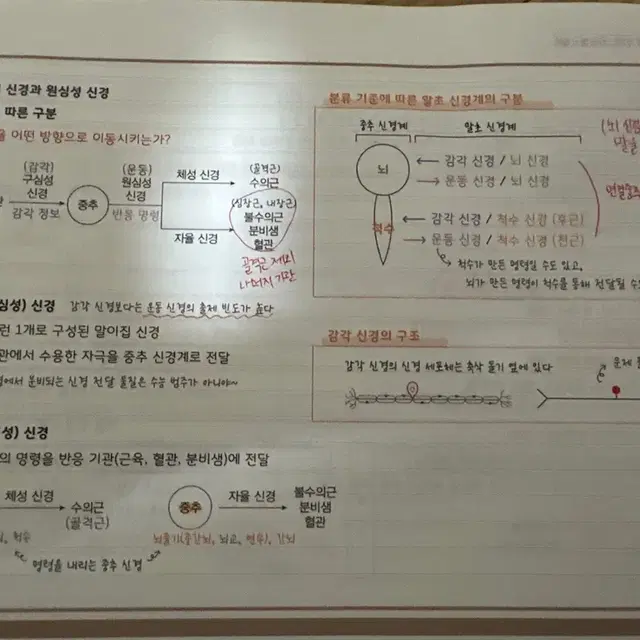 신경과 원심성 신경
따른 구분
어떤 방향으로 이동시키는가?
(감각)
구심성
신경
감각 정보
중추
(운동)
원심성
신경
반응 명령
체성 신경
(골격근)
수의근
자율 신경
(심장근, 내장근)
불수의근
분비샘
혈관
골격근 제외
나머지 기관
신경 감각 신경보다는 운동 신경의 출제 빈도가 높다
런 1개로 구성된 말이집 신경
관에서 수용한 자극을 중추 신경계로 전달
에서 분비되는 신경 전달 물질은 수능 범주가 아니야~
성) 신경
의 명령을 반응 기관(근육, 혈관, 분비샘)에 전달
체성 신경
수의근
(골격근)
척수
중추
자율 신경
불수의근
분비샘
혈관
뇌줄기(중간뇌, 뇌교, 연수), 간뇌
명령을 내리는 중추 신경
분류 기준에 따른 말초 신경계의 구분
중추 신경계
말초 신경계
뇌
감각 신경 / 뇌 신경
운동 신경 / 뇌 신경
척수
감각 신경 / 척수 신경 (후근)
운동 신경 / 척수 신경 (전근)
척수가 만든 명령일 수도 있고,
뇌가 만든 명령이 척수를 통해 전달될 수도
(뇌
감각 신경의 구조
감각 신경의 신경 세포체는 축삭 돌기 옆에 있다
문제